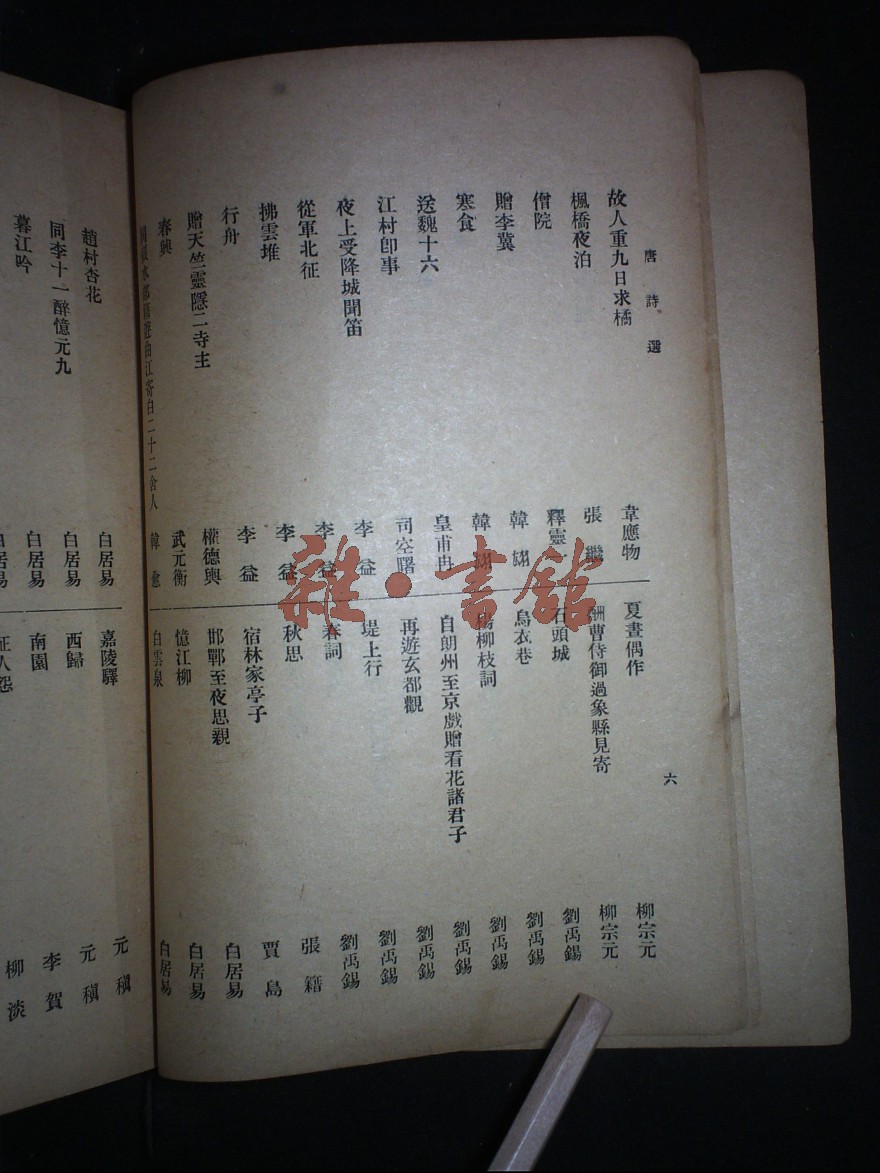 唐詩選
六
故人重九日求橘 韋應物
楓橋夜泊 張繼
僧院 釋靈一
贈李冀 韓翃
寒食 韓翃
送魏十六 皇甫冉
江村卽事 司空曙
夜上受降城聞笛 李益
從軍北征 李益
拂雲堆 李益
行舟 李益
贈天竺靈隱二寺主 權德輿
春興 武元衡
遊曲江寄白二十二舍人 韓愈
夏晝偶作 柳宗元
酬曹侍御過象縣見寄 柳宗元
石頭城 劉禹錫
烏衣巷 劉禹錫
楊柳枝詞 劉禹錫
自朗州至京戲贈看花諸君子 劉禹錫
再遊玄都觀 劉禹錫
堤上行 劉禹錫
春詞 劉禹錫
秋思 張籍
宿林家亭子 賈島
邯鄲至夜思親 白居易
憶江柳 白居易
白雲泉 白居易
趙村杏花 白居易
同李十一醉憶元九 白居易
暮江吟 白居易
白居易
嘉陵驛 元稹
西歸 元稹
南園 李賀
征人怨 柳淡
雜·書館